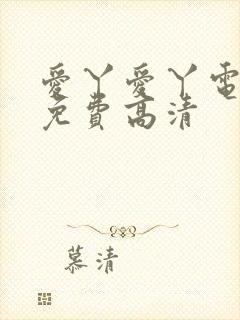 愛丫愛丫電
免費高清
慕清